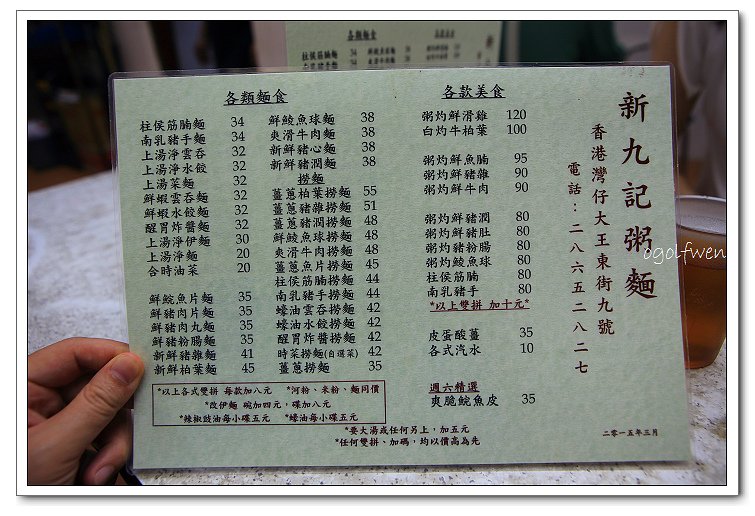 各類麵食
柱侯筋腩麵 34
南乳豬手麵 34
上湯淨雲吞 32
上湯淨水餃 32
上湯菜麵 32
鮮蝦雲吞麵 32
鮮蝦水餃麵 32
醒胃炸醬麵 32
上湯淨伊麵 30
上湯淨麵 20
合時油菜 20
鮮鯇魚片麵 35
鮮豬肉片麵 35
鮮豬肉丸麵 35
鮮豬粉腸麵 35
新鮮豬雜麵 41
新鮮柏葉麵 45
鮮鯪魚球麵 38
爽滑牛肉麵 38
新鮮豬心麵 38
新鮮豬潤麵 38
撈麵
薑蔥柏葉撈麵 55
薑蔥豬雜撈麵 51
薑蔥豬潤撈麵 48
鮮鯪魚球撈麵 48
爽滑牛肉撈麵 48
薑蔥魚片撈麵 45
柱侯筋腩撈麵 44
南乳豬手撈麵 44
蠔油雲吞撈麵 42
蠔油水餃撈麵 42
醒胃炸醬撈麵 42
時菜撈麵(自選菜) 42
薑蔥撈麵 35
*以上各式雙拼 每款加八元 *河粉、米粉、麵同價
*改伊麵 碗加四元，碟加八元
*辣椒豉油每小碟五元 *蠔油每小碟五元
*要大湯或任何另上，加五元
*任何雙拼、加碼，均以價高為先
各款美食
粥灼鮮滑雞 120
白灼牛柏葉 100
粥灼鮮魚腩 95
粥灼鮮豬雜 90
粥灼鮮牛肉 90
粥灼鮮豬潤 80
粥灼鮮豬肚 80
粥灼豬粉腸 80
粥灼鯪魚球 80
柱侯筋腩 80
南乳豬手 80
*以上雙拼 加十元*
皮蛋酸薑 35
各式汽水 10
週六精選
爽脆鯇魚皮 35
新九記粥麵
香港灣仔大王東街九號
電話：二八六五二八二七
二零一五年三月
ogolfwen